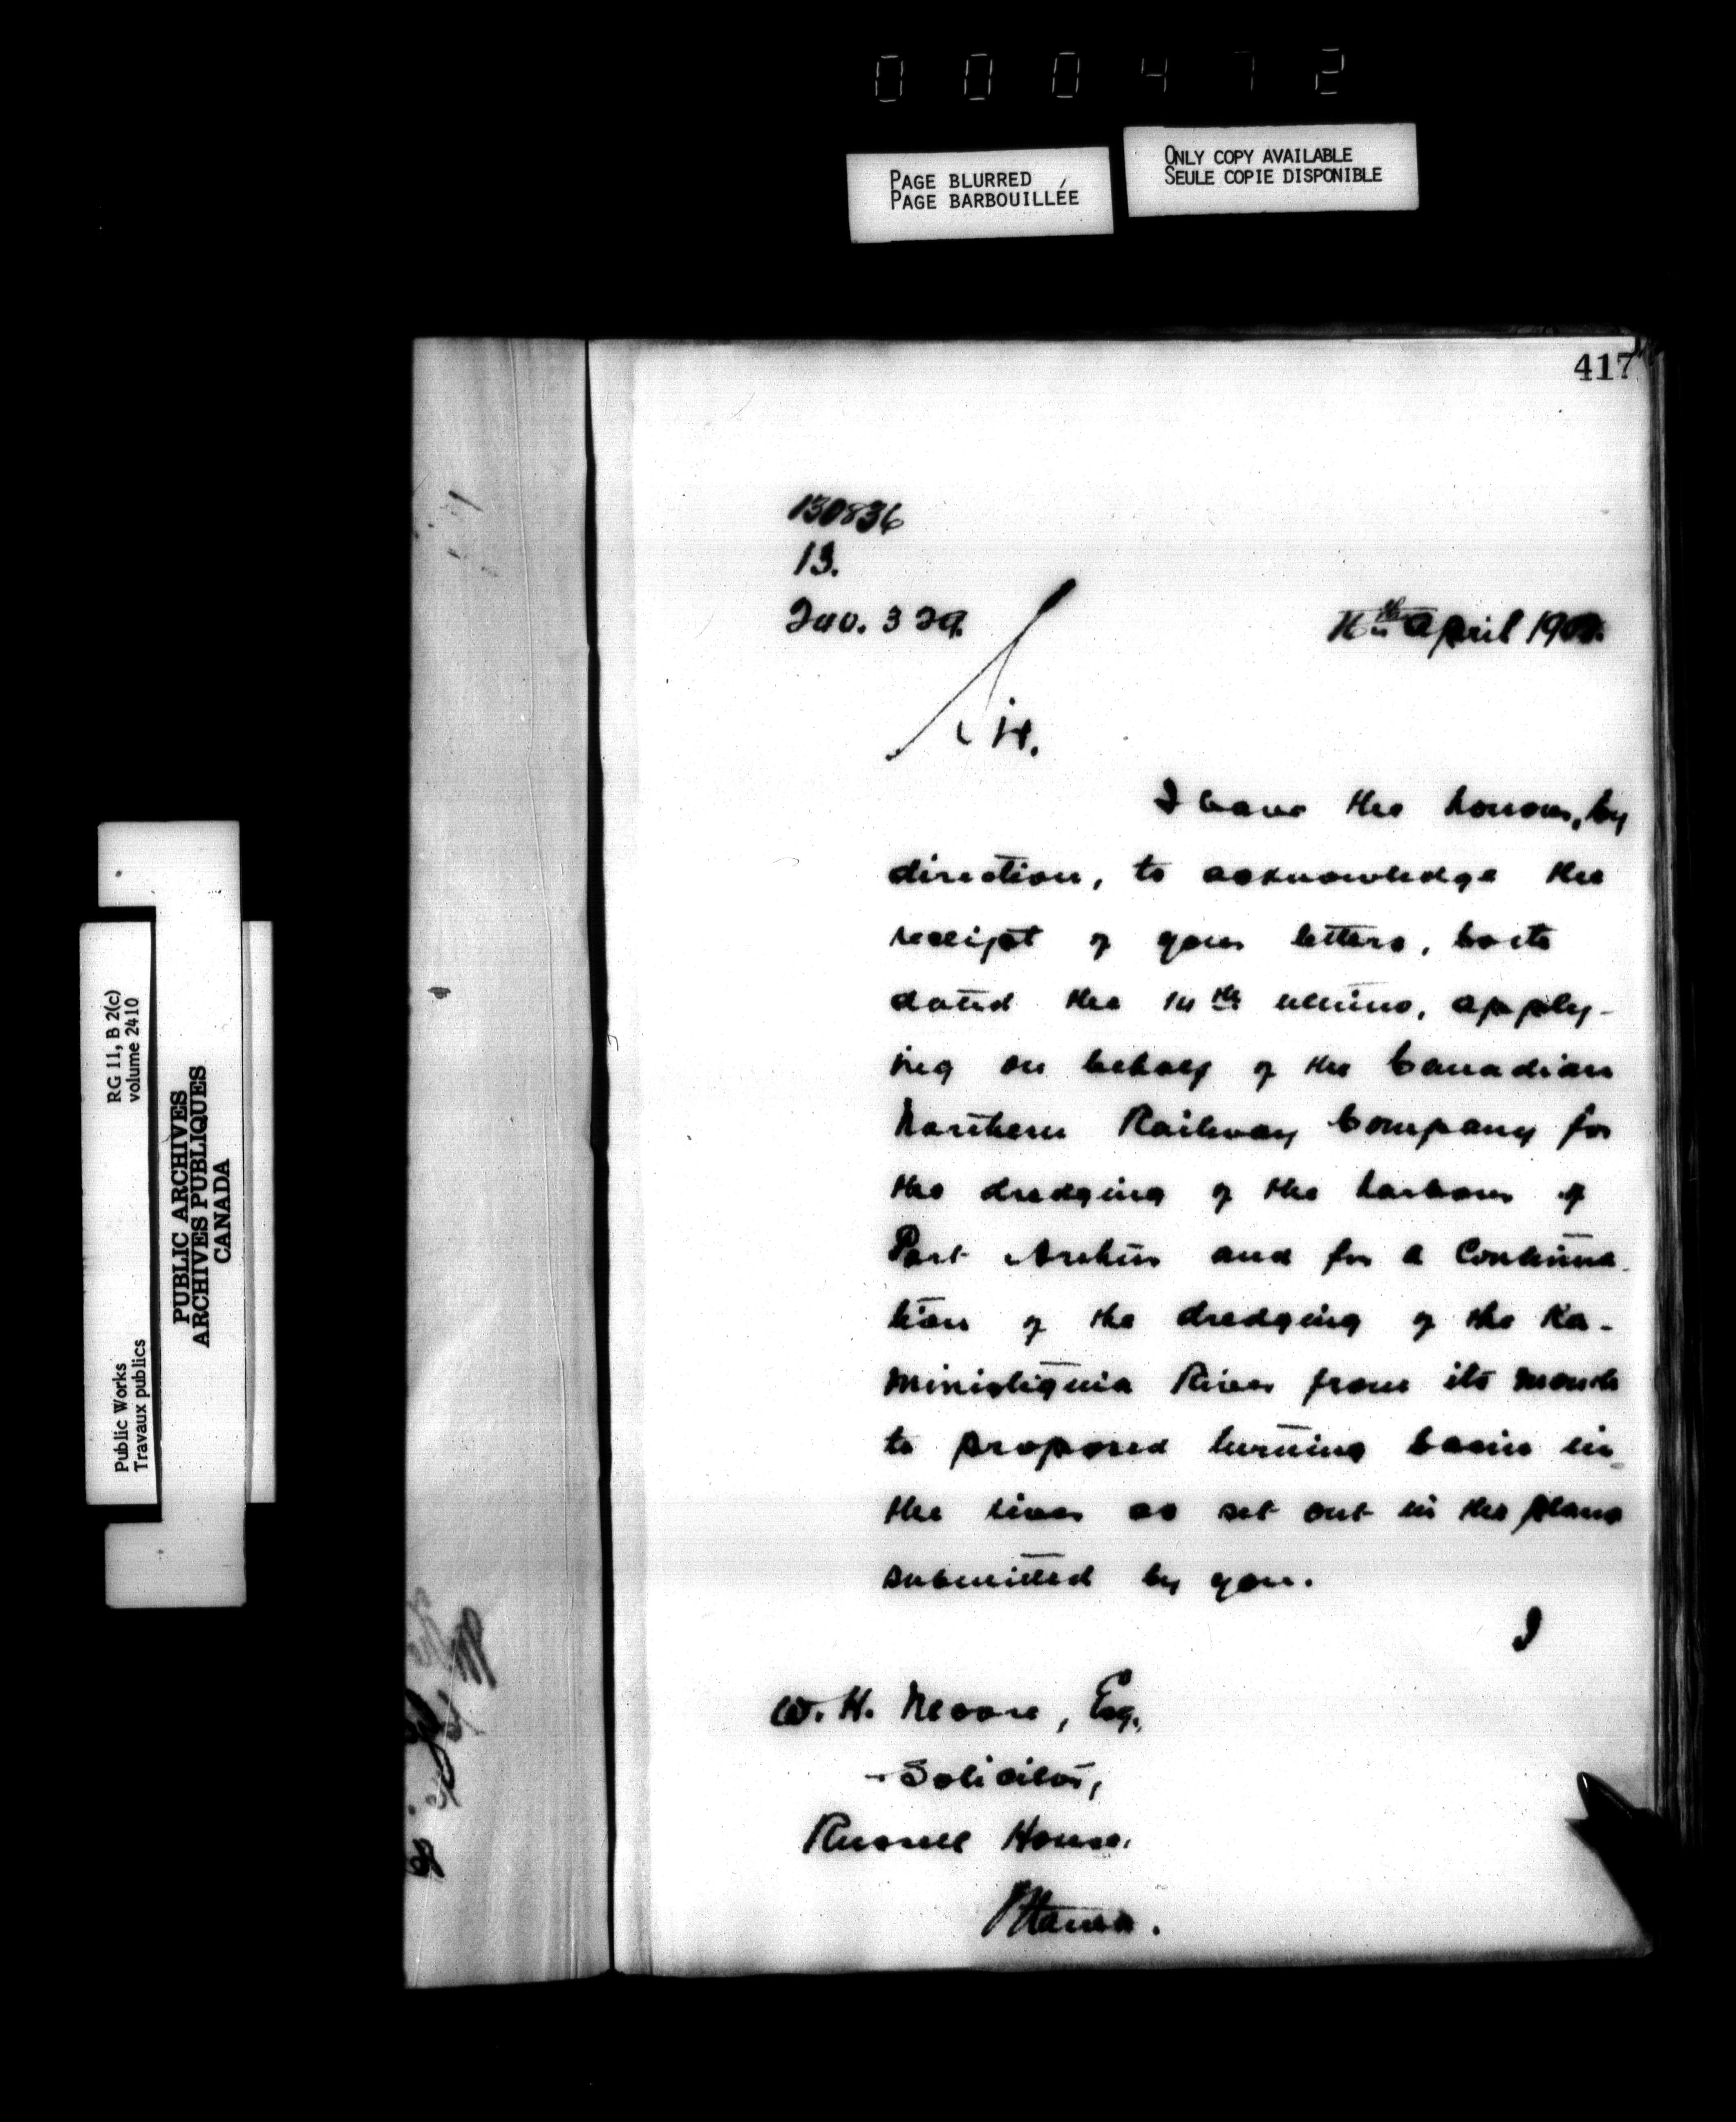 000472
PAGE BLURRED
PAGE BARBOUILLÉE
ONLY COPY AVAILABLE
SEULE COPIE DISPONIBLE
RG 11, B 2(c)
volume 2410
PUBLIC ARCHIVES
ARCHIVES PUBLIQUES
CANADA
Public Works
Travaux publics
417
130836
13.
329.
16th April
Sir.
I have the honour, by
direction, to acknowledge the
receipt of your letters, both
dated the 14th ultimo, apply-
ing on behalf of the Canadian
Northern Railway Company for
the dredging of the harbour of
Port Arthur and for a continua-
tion of the dredging of the Ka-
ministiquia River from its mouth
to proposed turning basin in
the river as set out in the plans
submitted by you.
I
W. H. Moore, Esq.,
Solicitor,
Russell House.
Ottawa.